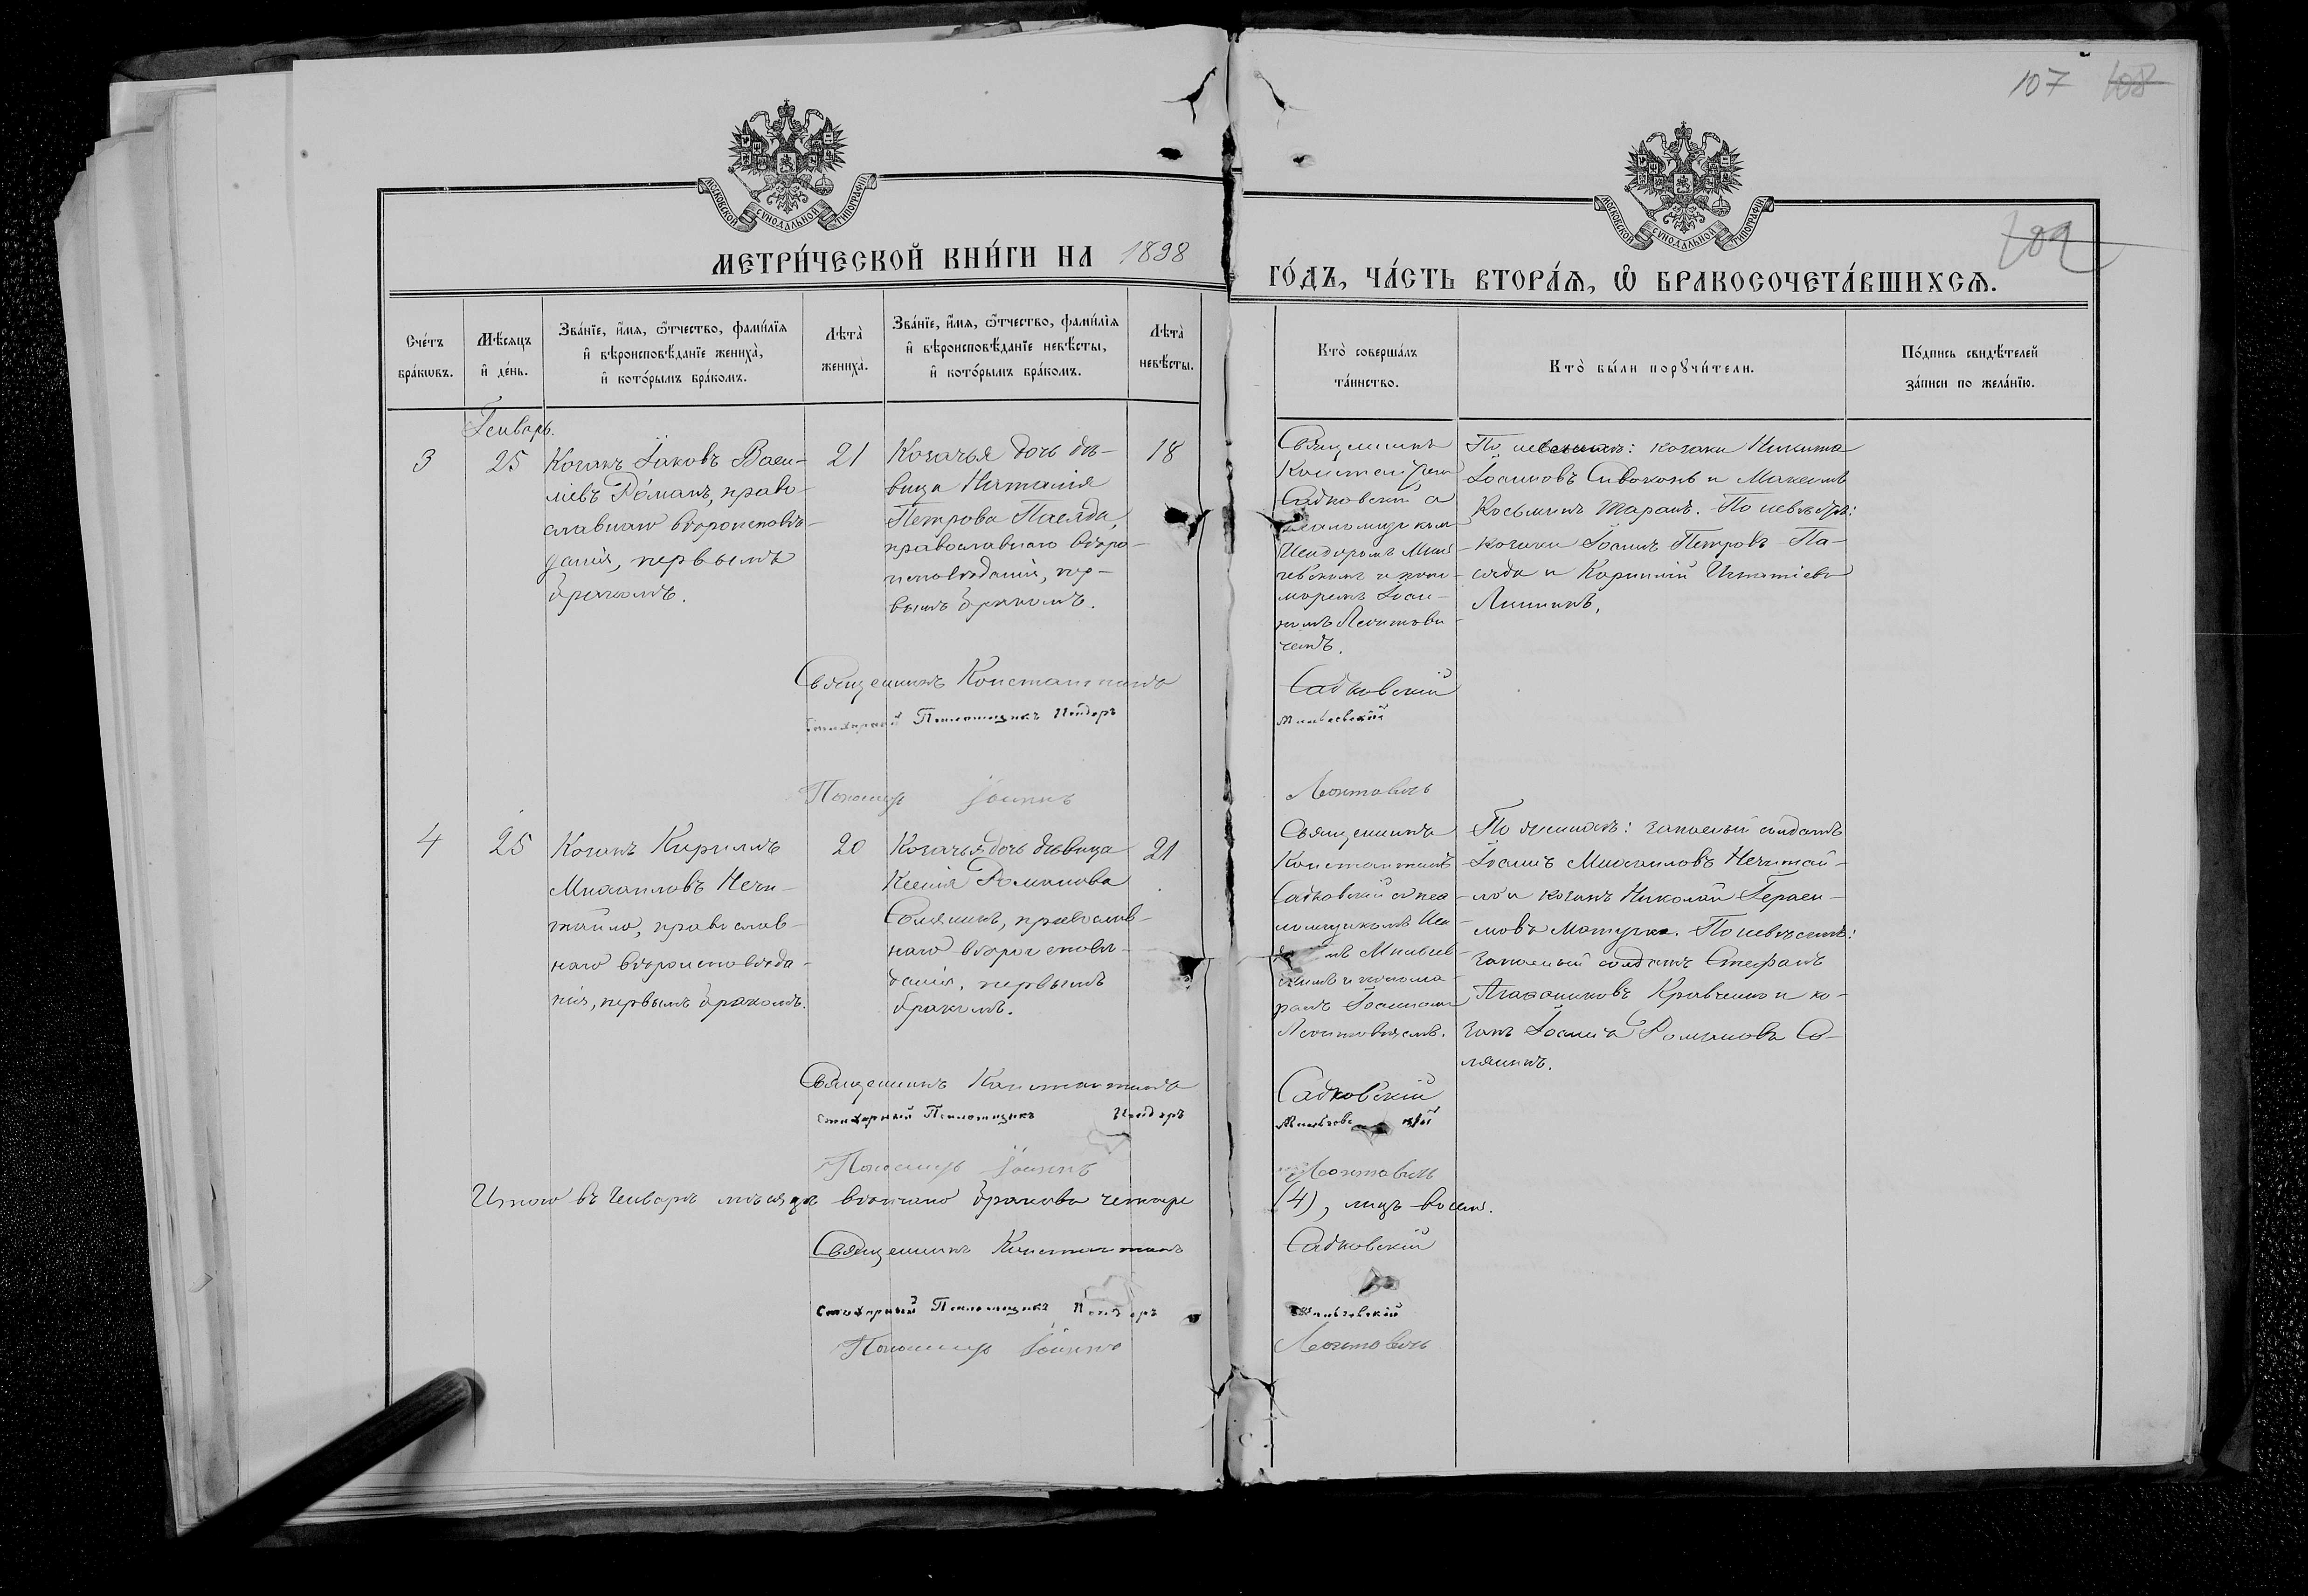 107 108
109
МОСКОВСКОЙ СѴНОДАЛЬНОЙ ТИПОГРАФІИ
МОСКОВСКОЙ СѴНОДАЛЬНОЙ ТИПОГРАФІИ
МЕТРИ́ЧЕСКОЙ КНИ́ГИ НА 1898
ГО́ДЪ, ЧА́СТЬ ВТОРА́Ѧ, Ѿ БРАКОСОЧЕТА́ВШИХСѦ.
Сче́тъ
бра́кѡвъ.
Мѣ́сѧцъ
и҆ де́нь.
Зва́нїе, и҆́мѧ, ѻ҆́тчество, фами́лїѧ
и҆ вѣроисповѣ́данїе жениха̀,
и҆ кото́рымъ бра́комъ.
Лѣта̀
жениха̀.
Зва́нїе, и҆́мѧ, ѻ҆́тчество, фами́лїѧ
и҆ вѣроисповѣ́данїе невѣ́сты,
и҆ кото́рымъ бра́комъ.
Лѣта̀
невѣ́сты.
Кто̀ соверша́лъ
та́инство.
Кто̀ бы́ли порꙋчи́тели.
По́дпись свидѣ́телей
за́писи по жела́нїю.
Генварь.
3
25
Козакъ Іаковъ Васи-
ліевъ Романъ, право-
славнаго вѣроисповѣ-
данія, первымъ
бракомъ.
21
Козачья дочь дѣ-
вица Наталія
Петрова Пасяда,
православнаго вѣро-
исповѣданія, пер-
вымъ бракомъ.
18
Священникъ
Константинъ
Садковскій съ
псаломщикомъ
Исидоромъ Минь-
чевскимъ и поно-
маремъ Іоан-
номъ Леонтови-
чемъ.
По женихѣ: козаки Никита
Іоанновъ Сивоконь и Максимъ
Косьминъ Таранъ. По невѣстѣ:
козаки Іоаннъ Петровъ Па-
сяда и Корнилій Игнатіевъ
Священникъ Константинъ Садковскій
Стихарный Псаломщикъ Исидоръ
Пономарь Іоаннъ Леонтовичъ
4
25
Козакъ Кириллъ
Михаиловъ Нечи-
тайло, православ-
наго вѣроисповѣда-
нія, первымъ бракомъ.
20
Козачья дочь дѣвица
Ксенія Романова
Соляникъ, православ-
наго вѣроисповѣ-
данія, первымъ
бракомъ.
21
Священникъ
Константинъ
Садковскій съ пса-
ломщикомъ Иси-
и понома-
ремъ Іоанномъ
Леонтовичемъ.
По женихѣ: запасный солдатъ
Іоаннъ Михаиловъ Нечитай-
ло и козакъ Николай Гераси-
мовъ Матушка. По невѣстѣ:
запасный солдатъ Стефанъ
Агафониковъ Кравченко и ко-
закъ Іоаннъ Романовъ Со-
ляникъ.
Священникъ Константинъ Садковскій
Стихарный Псаломщикъ Исидоръ
Пономарь Іоаннъ Леонтовичъ
Итого въ Генварѣ мѣсяцѣ вѣнчано браковъ четыре (4), лицъ восемь.
Священникъ Константинъ Садковскій
Стихарный Псаломщикъ Исидоръ
Пономарь Іоаннъ Леонтовичъ